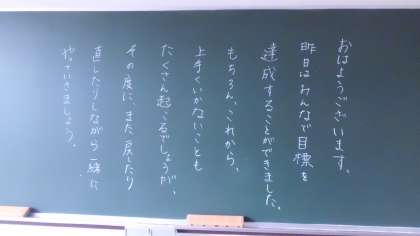 おはようございます。
昨日はみんなで目標を
達成することができました。
もちろん、これから、
上手くいかないことも
たくさん起こるでしょうが、
その度に、また、戻したり
直したりしながら一緒に
やっていきましょう。